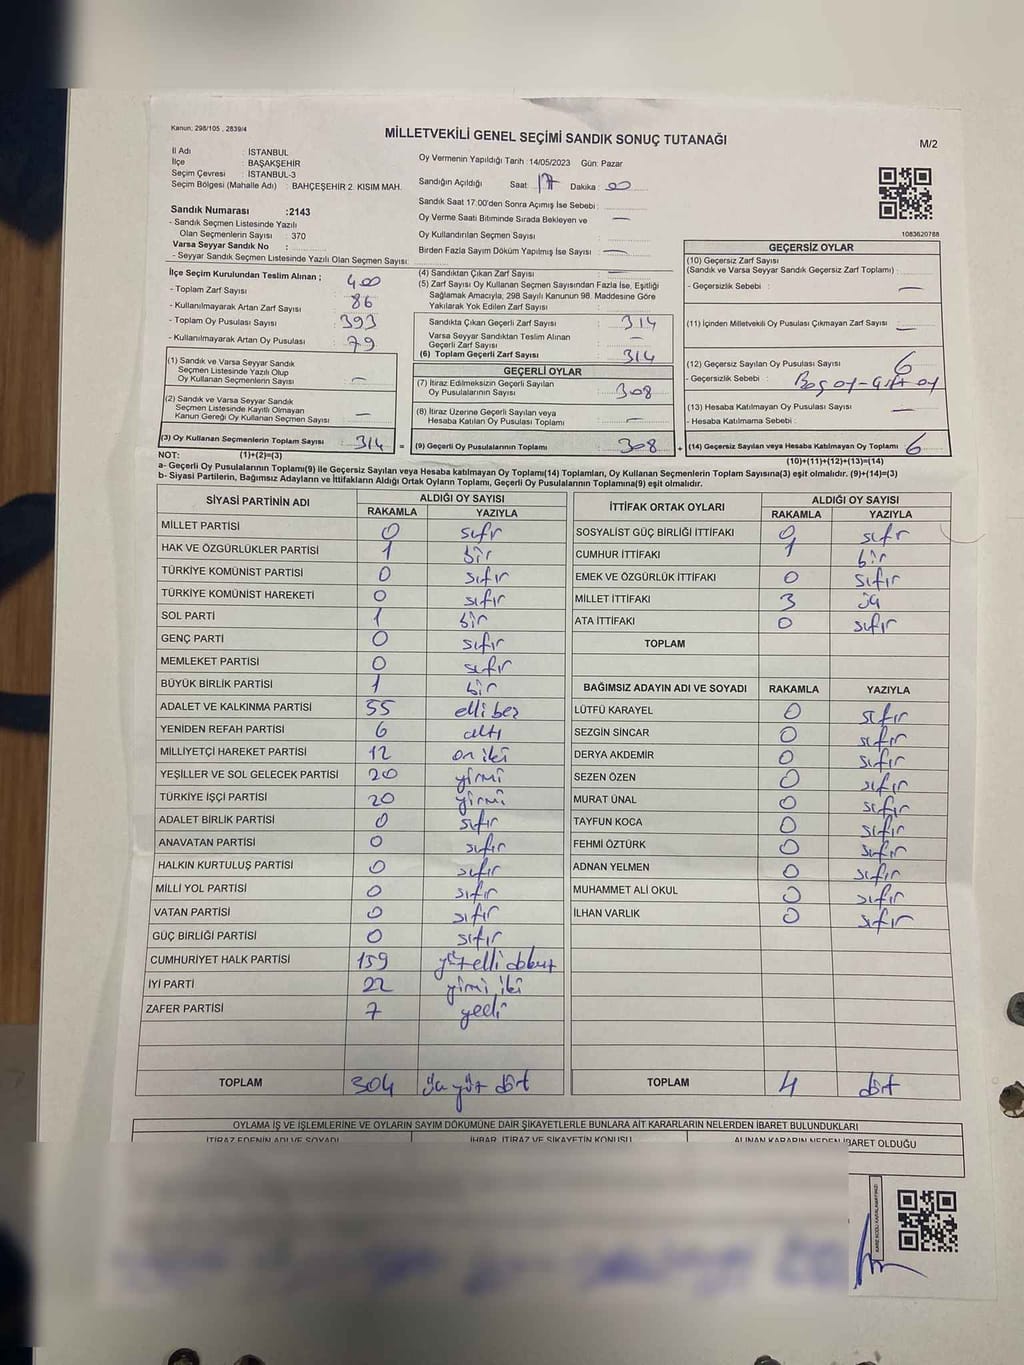 Kanun; 298/105 , 2839/4
MİLLETVEKİLİ GENEL SEÇİMİ SANDIK SONUÇ TUTANAĞI
M/2
İl Adı : İSTANBUL
İlçe : BAŞAKŞEHİR
Seçim Çevresi : İSTANBUL-3
Seçim Bölgesi (Mahalle Adı) : BAHÇEŞEHİR 2. KISIM MAH.
Sandık Numarası :2143
- Sandık Seçmen Listesinde Yazılı
Olan Seçmenlerin Sayısı : 370
Varsa Seyyar Sandık No :
- Seyyar Sandık Seçmen Listesinde Yazılı Olan Seçmen Sayısı:
Oy Vermenin Yapıldığı Tarih :14/05/2023 Gün: Pazar
Sandığın Açıldığı Saat: 17 Dakika : 00
Sandık Saat 17:00'den Sonra Açımış İse Sebebi :
Oy Verme Saati Bitiminde Sırada Bekleyen ve
Oy Kullandırılan Seçmen Sayısı : —
Birden Fazla Sayım Döküm Yapılmış İse Sayısı : —
1083620788
İlçe Seçim Kurulundan Teslim Alınan ;
- Toplam Zarf Sayısı : 400
- Kullanılmayarak Artan Zarf Sayısı : 86
- Toplam Oy Pusulası Sayısı : 393
- Kullanılmayarak Artan Oy Pusulası : 79
(1) Sandık ve Varsa Seyyar Sandık
Seçmen Listesinde Yazılı Olup
Oy Kullanan Seçmenlerin Sayısı : —
(2) Sandık ve Varsa Seyyar Sandık
Seçmen Listesinde Kayıtlı Olmayan
Kanun Gereği Oy Kullanan Seçmen Sayısı : —
(3) Oy Kullanan Seçmenlerin Toplam Sayısı : 314 =
(4) Sandıktan Çıkan Zarf Sayısı : —
(5) Zarf Sayısı Oy Kullanan Seçmen Sayısından Fazla İse, Eşitliği
Sağlamak Amacıyla; 298 Sayılı Kanunun 98. Maddesine Göre
Yakılarak Yok Edilen Zarf Sayısı :
Sandıkta Çıkan Geçerli Zarf Sayısı : 314
Varsa Seyyar Sandıktan Teslim Alınan
Geçerli Zarf Sayısı : —
(6) Toplam Geçerli Zarf Sayısı : 314
GEÇERLİ OYLAR
(7) İtiraz Edilmeksizin Geçerli Sayılan
Oy Pusulalarının Sayısı : 308
(8) İtiraz Üzerine Geçerli Sayılan veya
Hesaba Katılan Oy Pusulası Sayısı : —
(9) Geçerli Oy Pusulalarının Toplamı : 308 +
GEÇERSİZ OYLAR
(10) Geçersiz Zarf Sayısı
(Sandık ve Varsa Seyyar Sandık Geçersiz Zarf Toplamı) :
- Geçersizlik Sebebi : —
(11) İçinden Milletvekili Oy Pusulası Çıkmayan Zarf Sayısı : —
(12) Geçersiz Sayılan Oy Pusulası Sayısı : 6
- Geçersizlik Sebebi : Boş oy-Çift oy
(13) Hesaba Katılmayan Oy Pusulası Sayısı : —
- Hesaba Katılmama Sebebi :
(14) Geçersiz Sayılan veya Hesaba Katılmayan Oy Toplamı : 6
NOT: (1)+(2)=(3)
(10)+(11)+(12)+(13)=(14)
a- Geçerli Oy Pusulalarının Toplamı(9) ile Geçersiz Sayılan veya Hesaba katılmayan Oy Toplamı(14) Toplamları, Oy Kullanan Seçmenlerin Toplam Sayısına(3) eşit olmalıdır. (9)+(14)=(3)
b- Siyasi Partilerin, Bağımsız Adayların ve İttifakların Aldığı Ortak Oyların Toplamı, Geçerli Oy Pusulalarının Toplamına(9) eşit olmalıdır.
SİYASİ PARTİNİN ADI ALDIĞI OY SAYISI
RAKAMLA YAZIYLA
MİLLET PARTİSİ 0 sıfır
HAK VE ÖZGÜRLÜKLER PARTİSİ 1 bir
TÜRKİYE KOMÜNİST PARTİSİ 0 sıfır
TÜRKİYE KOMÜNİST HAREKETİ 0 sıfır
SOL PARTİ 1 bir
GENÇ PARTİ 0 sıfır
MEMLEKET PARTİSİ 0 sıfır
BÜYÜK BİRLİK PARTİSİ 1 bir
ADALET VE KALKINMA PARTİSİ 55 elli beş
YENİDEN REFAH PARTİSİ 6 altı
MİLLİYETÇİ HAREKET PARTİSİ 12 on iki
YEŞİLLER VE SOL GELECEK PARTİSİ 20 yirmi
TÜRKİYE İŞÇİ PARTİSİ 20 yirmi
ADALET BİRLİK PARTİSİ 0 sıfır
ANAVATAN PARTİSİ 0 sıfır
HALKIN KURTULUŞ PARTİSİ 0 sıfır
MİLLİ YOL PARTİSİ 0 sıfır
VATAN PARTİSİ 0 sıfır
GÜÇ BİRLİĞİ PARTİSİ 0 sıfır
CUMHURİYET HALK PARTİSİ 159 yüz elli dokuz
İYİ PARTİ 22 yirmi iki
ZAFER PARTİSİ 7 yedi
TOPLAM 304 üç yüz dört
İTTİFAK ORTAK OYLARI ALDIĞI OY SAYISI
RAKAMLA YAZIYLA
SOSYALİST GÜÇ BİRLİĞİ İTTİFAKI 0 sıfır
CUMHUR İTTİFAKI 1 bir
EMEK VE ÖZGÜRLÜK İTTİFAKI 0 sıfır
MİLLET İTTİFAKI 3 üç
ATA İTTİFAKI 0 sıfır
TOPLAM
BAĞIMSIZ ADAYIN ADI VE SOYADI RAKAMLA YAZIYLA
LÜTFÜ KARAYEL 0 sıfır
SEZGİN SİNCAR 0 sıfır
DERYA AKDEMİR 0 sıfır
SEZEN ÖZEN 0 sıfır
MURAT ÜNAL 0 sıfır
TAYFUN KOCA 0 sıfır
FEHMİ ÖZTÜRK 0 sıfır
ADNAN YELMEN 0 sıfır
MUHAMMET ALİ OKUL 0 sıfır
İLHAN VARLIK 0 sıfır
TOPLAM 4 dört
OYLAMA İŞ VE İŞLEMLERİNE VE OYLARIN SAYIM DÖKÜMÜNE DAİR ŞİKAYETLERLE BUNLARA AİT KARARLARIN NELERDEN İBARET BULUNDUKLARI
İTİRAZ EDENİN ADI VE SOYADI İHBAR, İTİRAZ VE ŞİKAYETİN KONUSU ALINAN KARARIN NEDEN İBARET OLDUĞU
KAREKODU KARALAMAYINIZ!